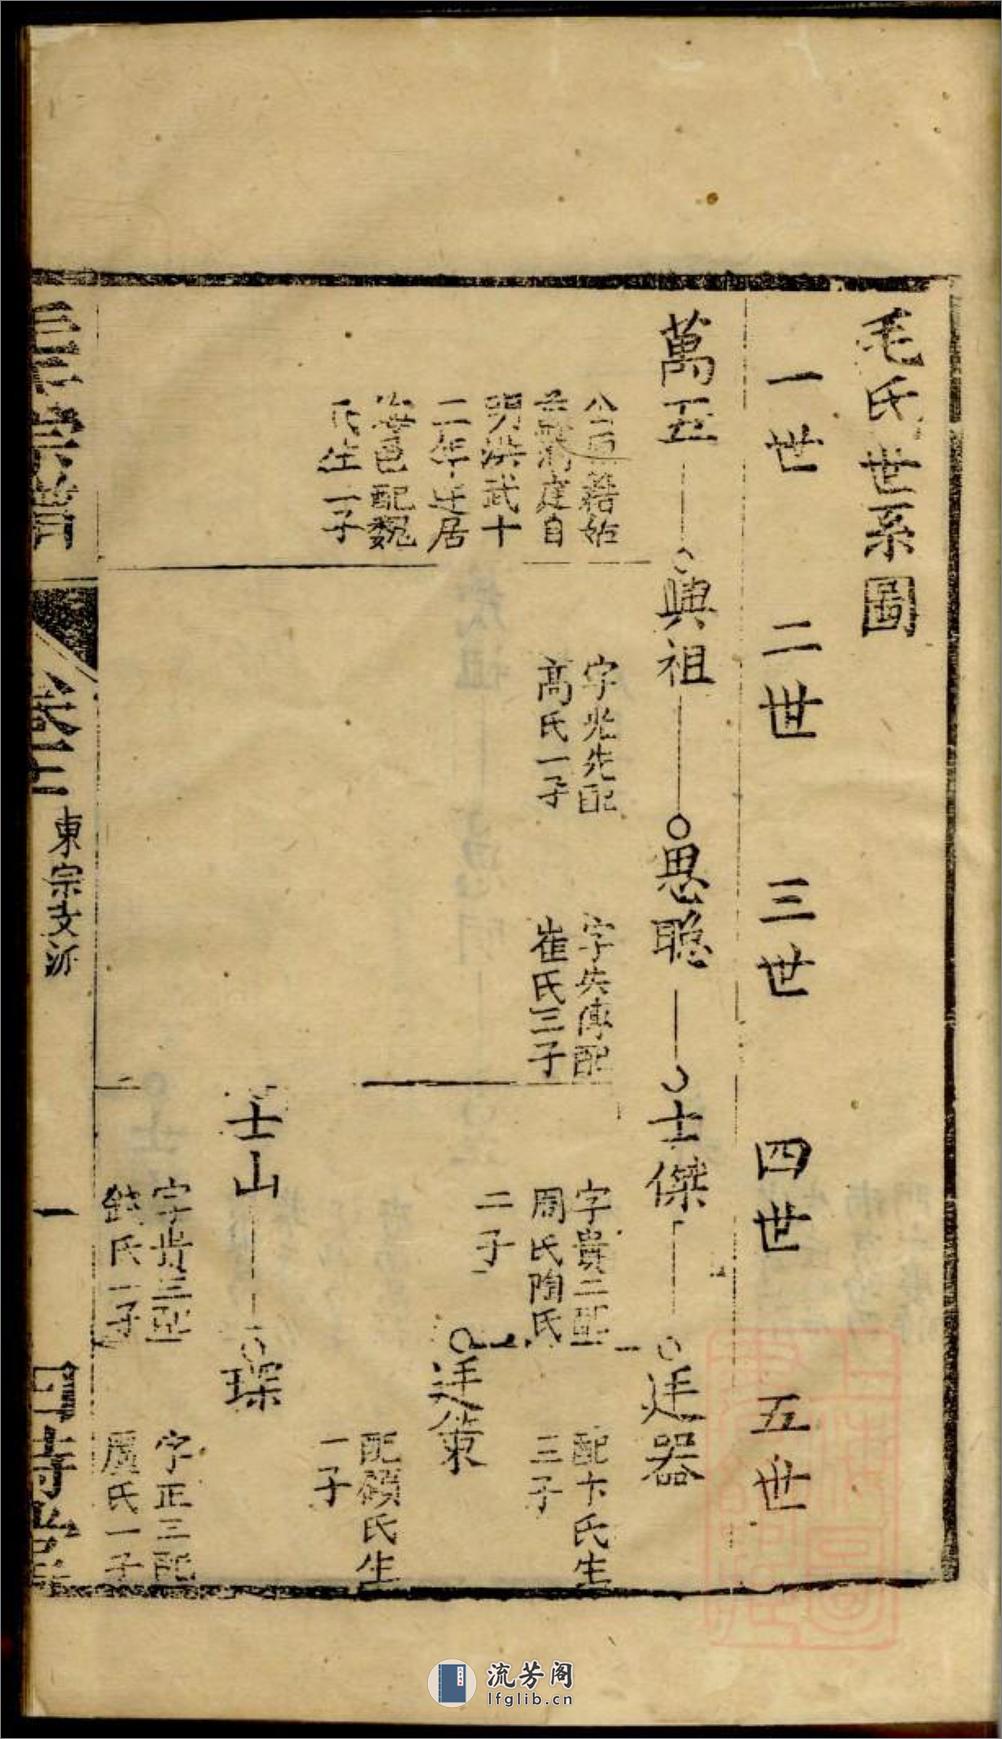 毛氏世系圖
一世 二世 三世 四世 五世
萬五 興祖 思聰 士傑 廷器
公原籍始
蘇洞庭自
明洪武十
二年迁居
海邑配魏
氏生一子
字光先配
高氏一子
字失傳配
崔氏三子
字貴二配
周氏陶氏
二子
配卞氏生
三子
廷策
配顧氏生
一子
士山 琛
字肯三配
錢氏一子
字正三配
厲氏一子
毛氏宗譜
卷十二
東宗支派
一
流芳阁
lfglib.cn